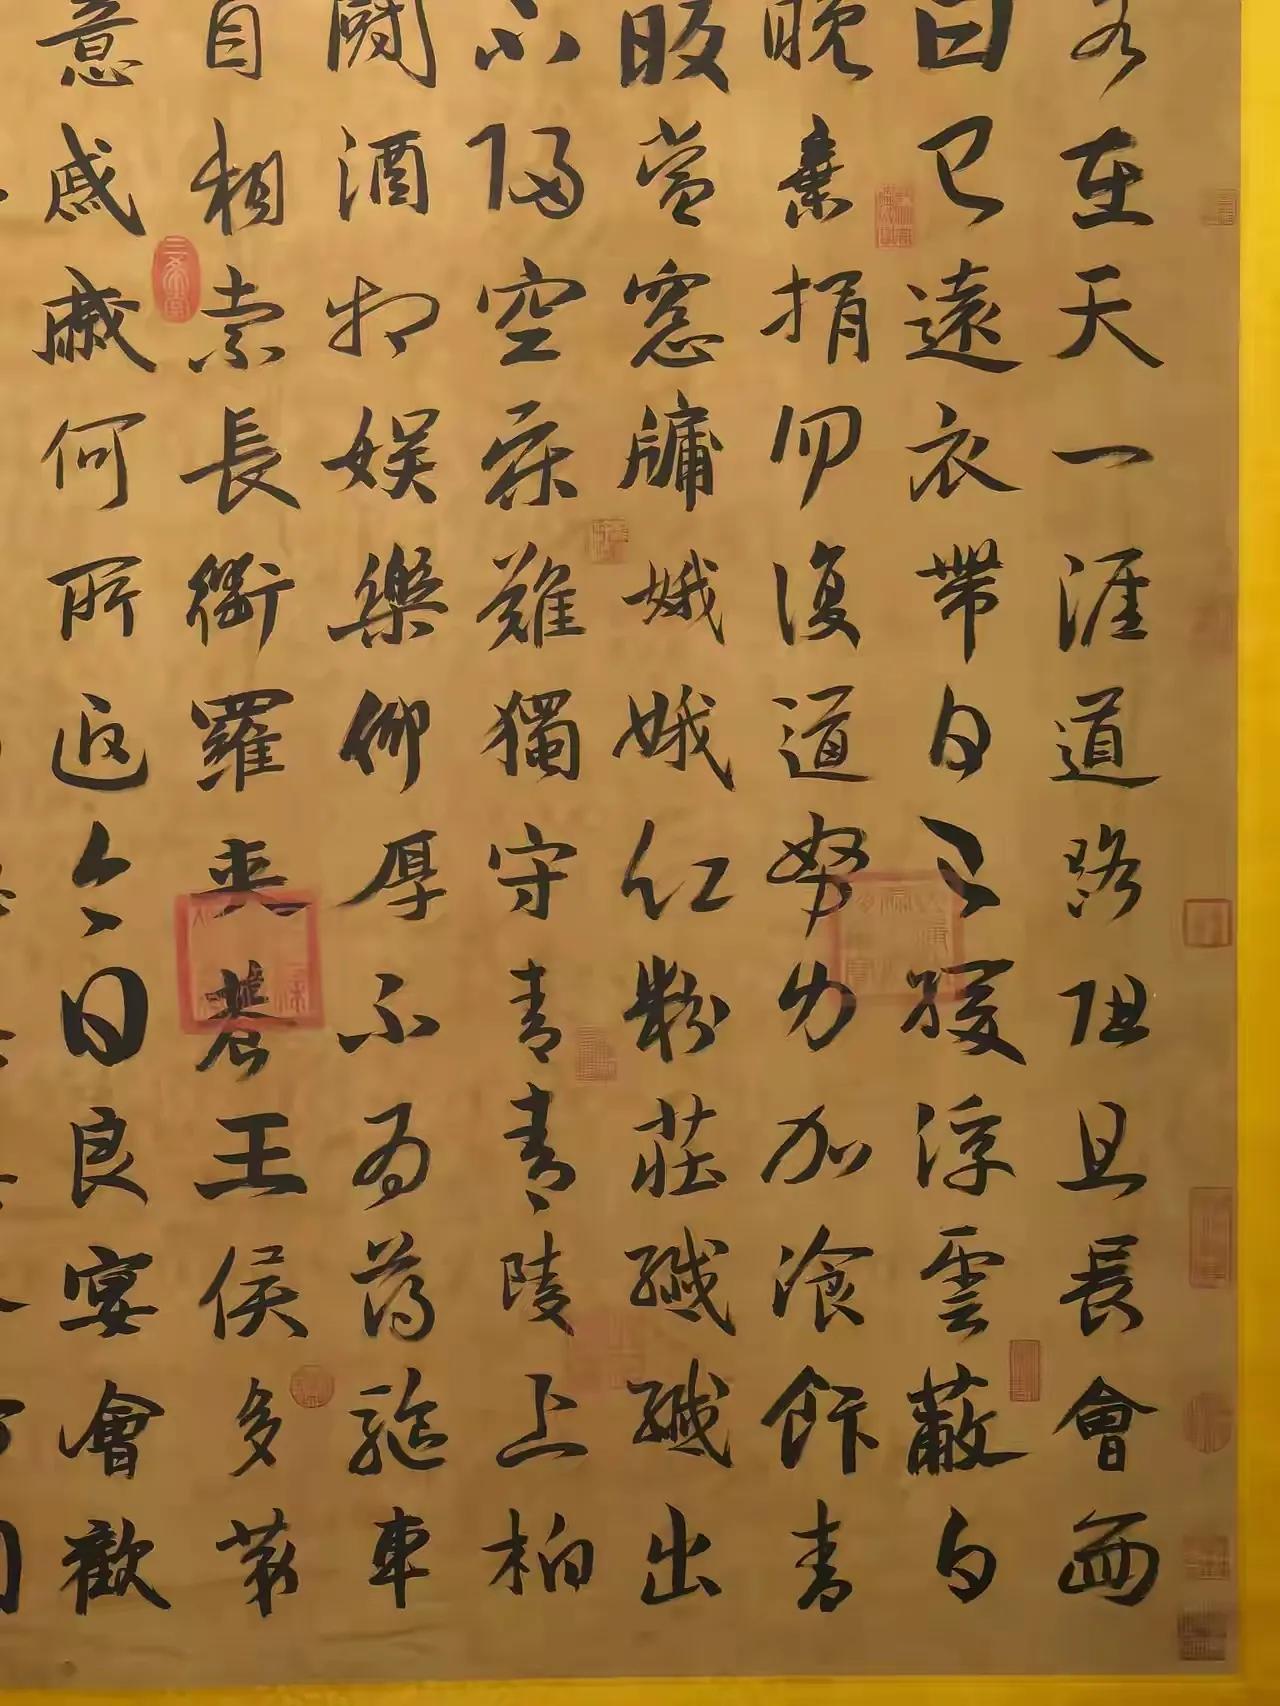 各在天一涯道路阻且長會面
日已遠衣帶日已緩浮雲蔽白
晚棄捐勿復道努力加飡飰青
當窓牖娥娥紅粉莊纖纖出
不歸空床難獨守青青陵上柏
鬪酒相娛樂聊厚不為薄驅車
自相索長衢羅夾巷王侯多第
意戚戚何所迫今日良宴會歡